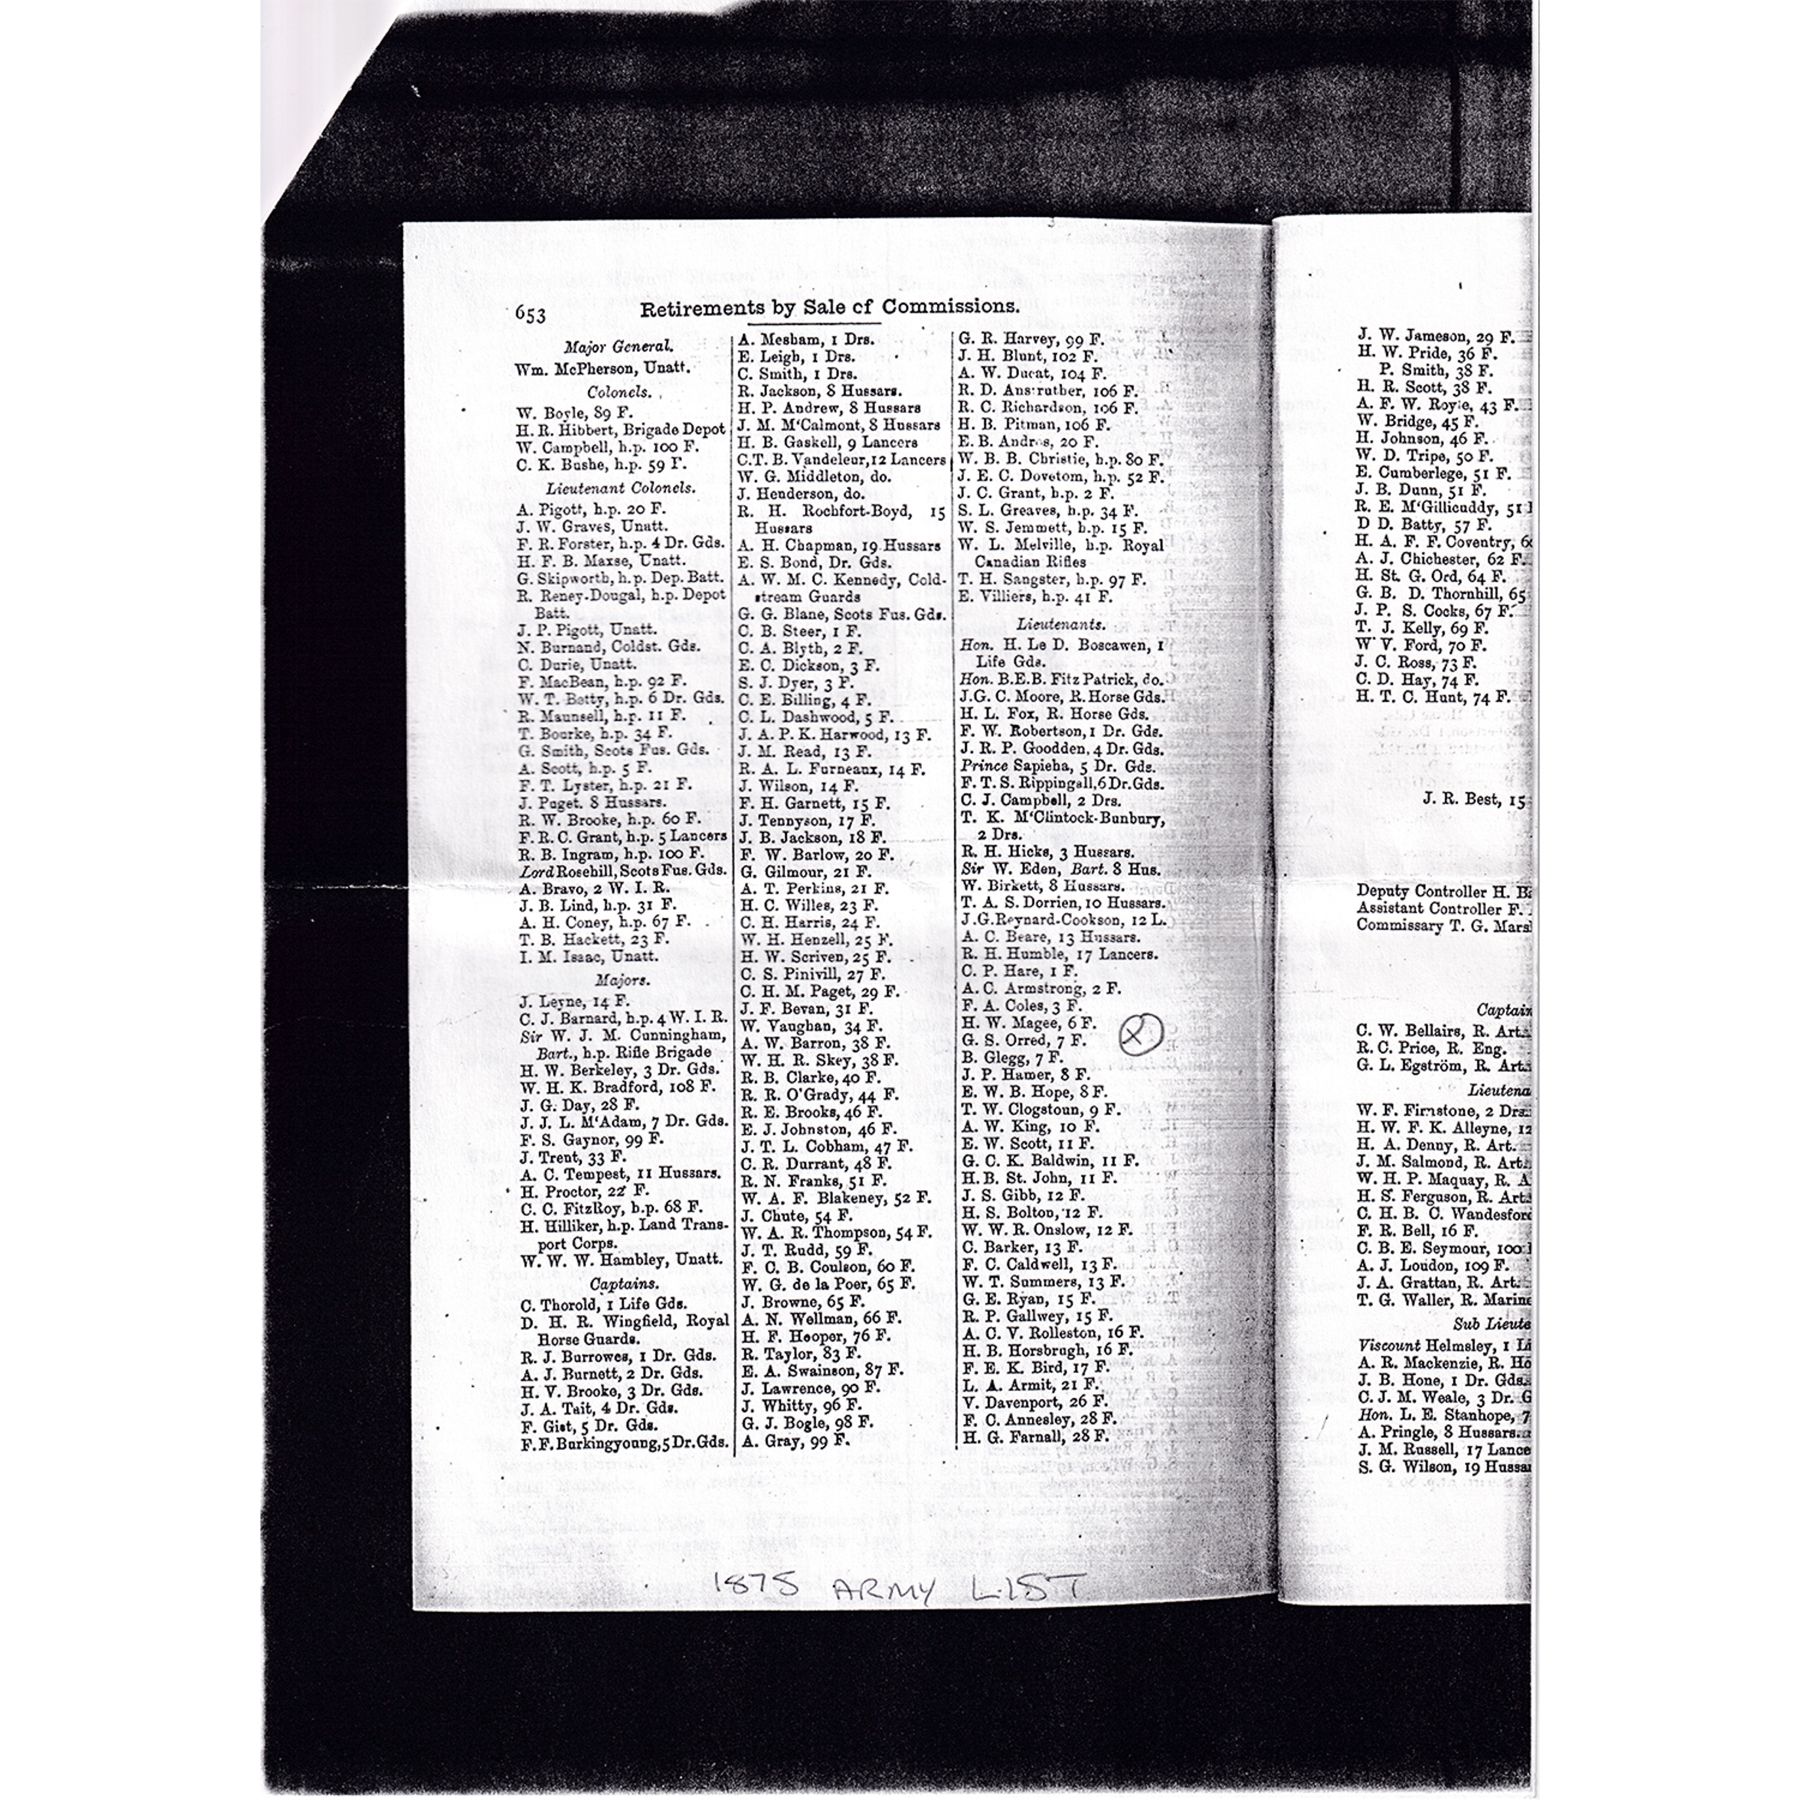 653
Retirements by Sale cf Commissions.
Major General.
Wm. McPherson, Unatt.
Colonels.
W. Boyle, 89 F.
H. R. Hibbert, Brigade Depot
W. Campbell, h.p. 100 F.
C. K. Bushe, h.p. 59 F.
Lieutenant Colonels.
A. Pigott, h.p. 20 F.
J. W. Graves, Unatt.
F. R. Forster, h.p. 4 Dr. Gds.
H. F. B. Maxse, Unatt.
G. Skipworth, h.p. Dep. Batt.
R. Reney-Dougal, h.p. Depot
Batt.
J. P. Pigott, Unatt.
N. Burnand, Coldst. Gds.
C. Durie, Unatt.
F. MacBean, h.p. 92 F.
W. T. Betty, h.p. 6 Dr. Gds.
R. Maunsell, h.p. 11 F.
T. Bourke, h.p. 34 F.
G. Smith, Scots Fus. Gds.
A. Scott, h.p. 5 F.
F. T. Lyster, h.p. 21 F.
J. Paget. 8 Hussars.
R. W. Brooke, h.p. 60 F.
F. R. C. Grant, h.p. 5 Lancers
R. B. Ingram, h.p. 100 F.
Lord Rosehill, Scots Fus. Gds.
A. Bravo, 2 W. I. R.
J. B. Lind, h.p. 31 F.
A. H. Coney, h.p. 67 F.
T. B. Hackett, 23 F.
I. M. Isaac, Unatt.
Majors.
J. Leyne, 14 F.
C. J. Barnard, h.p. 4 W. I. R.
Sir W. J. M. Cunningham,
Bart., h.p. Rifle Brigade
H. W. Berkeley, 3 Dr. Gds.
W. H. K. Bradford, 108 F.
J. G. Day, 28 F.
J. J. L. M'Adam, 7 Dr. Gds.
F. S. Gaynor, 99 F.
J. Trent, 33 F.
A. C. Tempest, 11 Hussars.
H. Proctor, 22 F.
C. C. FitzRoy, h.p. 68 F.
H. Hilliker, h.p. Land Trans-
port Corps.
W. W. W. Hambley, Unatt.
Captains.
C. Thorold, 1 Life Gds.
D. H. R. Wingfield, Royal
Horse Guards.
R. J. Burrowes, 1 Dr. Gds.
A. J. Burnett, 2 Dr. Gds.
H. V. Brooke, 3 Dr. Gds.
J. A. Tait, 4 Dr. Gds.
F. Gist, 5 Dr. Gds.
F. F. Burkingyoung, 5 Dr. Gds.
A. Mesham, 1 Drs.
E. Leigh, 1 Drs.
C. Smith, 1 Drs.
R. Jackson, 8 Hussars.
H. P. Andrew, 8 Hussars
J. M. M'Calmont, 8 Hussars
H. B. Gaskell, 9 Lancers
C. T. B. Vandeleur, 12 Lancers
W. G. Middleton, do.
J. Henderson, do.
R. H. Rochfort-Boyd, 15
Hussars
A. H. Chapman, 19 Hussars
E. S. Bond, Dr. Gds.
A. W. M. C. Kennedy, Cold-
stream Guards
G. G. Blane, Scots Fus. Gds.
C. B. Steer, 1 F.
C. A. Blyth, 2 F.
E. C. Dickson, 3 F.
S. J. Dyer, 3 F.
C. E. Billing, 4 F.
C. L. Dashwood, 5 F.
J. A. P. K. Harwood, 13 F.
J. M. Read, 13 F.
R. A. L. Furneaux, 14 F.
J. Wilson, 14 F.
F. H. Garnett, 15 F.
J. Tennyson, 17 F.
J. B. Jackson, 18 F.
F. W. Barlow, 20 F.
G. Gilmour, 21 F.
A. T. Perkins, 21 F.
H. C. Willes, 23 F.
C. H. Harris, 24 F.
W. H. Henzell, 25 F.
H. W. Scriven, 25 F.
C. S. Pinivill, 27 F.
C. H. M. Paget, 29 F.
J. F. Bevan, 31 F.
W. Vaughan, 34 F.
A. W. Barron, 38 F.
W. H. R. Skey, 38 F.
R. B. Clarke, 40 F.
R. R. O'Grady, 44 F.
R. E. Brooks, 46 F.
E. J. Johnston, 46 F.
J. T. L. Cobham, 47 F.
C. R. Durrant, 48 F.
R. N. Franks, 51 F.
W. A. F. Blakeney, 52 F.
J. Chute, 54 F.
W. A. R. Thompson, 54 F.
J. T. Rudd, 59 F.
F. C. B. Coulson, 60 F.
W. G. de la Poer, 65 F.
J. Browne, 65 F.
A. N. Wellman, 66 F.
H. F. Hooper, 76 F.
R. Taylor, 83 F.
E. A. Swainson, 87 F.
J. Lawrence, 90 F.
J. Whitty, 96 F.
G. J. Bogle, 98 F.
A. Gray, 99 F.
G. R. Harvey, 99 F.
J. H. Blunt, 102 F.
A. W. Ducat, 104 F.
R. D. Anstruther, 106 F.
R. C. Richardson, 106 F.
H. B. Pitman, 106 F.
E. B. Andros, 20 F.
W. B. B. Christie, h.p. 80 F.
J. E. C. Dovetom, h.p. 52 F.
J. C. Grant, h.p. 2 F.
S. L. Greaves, h.p. 34 F.
W. S. Jemmett, h.p. 15 F.
W. L. Melville, h.p. Royal
Canadian Rifles
T. H. Sangster, h.p. 97 F.
E. Villiers, h.p. 41 F.
Lieutenants.
Hon. H. Le D. Boscawen, 1
Life Gds.
Hon. B.E.B. Fitz Patrick, do.
J.G. C. Moore, R. Horse Gds.
H. L. Fox, R. Horse Gds.
F. W. Robertson, 1 Dr. Gds.
J. R. P. Goodden, 4 Dr. Gds.
Prince Sapieha, 5 Dr. Gds.
F. T. S. Rippingall, 6 Dr. Gds.
C. J. Campbell, 2 Drs.
T. K. M'Clintock-Bunbury,
2 Drs.
R. H. Hicks, 3 Hussars.
Sir W. Eden, Bart. 8 Hus.
W. Birkett, 8 Hussars.
T. A. S. Dorrien, 10 Hussars.
J. G. Reynard-Cookson, 12 L.
A. C. Beare, 13 Hussars.
R. H. Humble, 17 Lancers.
C. P. Hare, 1 F.
A. C. Armstrong, 2 F.
F. A. Coles, 3 F.
H. W. Magee, 6 F.
G. S. Orred, 7 F.
B. Glegg, 7 F.
J. P. Hamer, 8 F.
E. W. B. Hope, 8 F.
T. W. Clogstoun, 9 F.
A. W. King, 10 F.
E. W. Scott, 11 F.
G. C. K. Baldwin, 11 F.
H.B. St. John, 11 F.
J. S. Gibb, 12 F.
H. S. Bolton, 12 F.
W. W. R. Onslow, 12 F.
C. Barker, 13 F.
F. C. Caldwell, 13 F.
W. T. Summers, 13 F.
G. E. Ryan, 15 F.
R. P. Gallwey, 15 F.
A. C. V. Rolleston, 16 F.
H. B. Horsbrugh, 16 F.
F. E. K. Bird, 17 F.
L. A. Armit, 21 F.
V. Davenport, 26 F.
F. C. Annesley, 28 F.
H. G. Farnall, 28 F.
1875 ARMY LIST
J. W. Jameson, 29 F.
H. W. Pride, 36 F.
P. Smith, 38 F.
H. R. Scott, 38 F.
A. F. W. Royle, 43 F.
W. Bridge, 45 F.
H. Johnson, 46 F.
W. D. Tripe, 50 F.
E. Cumberlege, 51 F.
J. B. Dunn, 51 F.
R. E. M'Gillicuddy, 51
D D. Batty, 57 F.
H. A. F. F. Coventry,
A. J. Chichester, 62 F.
H. St. G. Ord, 64 F.
G. B. D. Thornhill, 65
J. P. S. Cocks, 67 F.
T. J. Kelly, 69 F.
W V. Ford, 70 F.
J. C. Ross, 73 F.
C. D. Hay, 74 F.
H. T. C. Hunt, 74 F.
J. R. Best, 15
Deputy Controller H.
Assistant Controller F.
Commissary T. G.
Captain
C. W. Bellairs, R. Art.
R. C. Price, R. Eng.
G. L. Egström, R. Art.
Lieutena
W. F. Firmstone, 2 Drs.
H. W. F. K. Alleyne, 12
H. A. Denny, R. Art.
J. M. Salmond, R. Art.
W. H. P. Maquay, R. A
H. S. Ferguson, R. Art.
C. H. B. C. Wandesford
F. R. Bell, 16 F.
C. B. E. Seymour, 100
A. J. Loudon, 109 F.
J. A. Grattan, R. Art.
T. G. Waller, R. Marine
Sub Lieute
Viscount Helmsley, 1 Li
A. R. Mackenzie, R. Ho
J. B. Hone, 1 Dr. Gds.
C. J. M. Weale, 3 Dr. G
Hon. L. E. Stanhope, 7
A. Pringle, 8 Hussars.
J. M. Russell, 17 Lance
S. G. Wilson, 19 Hussa